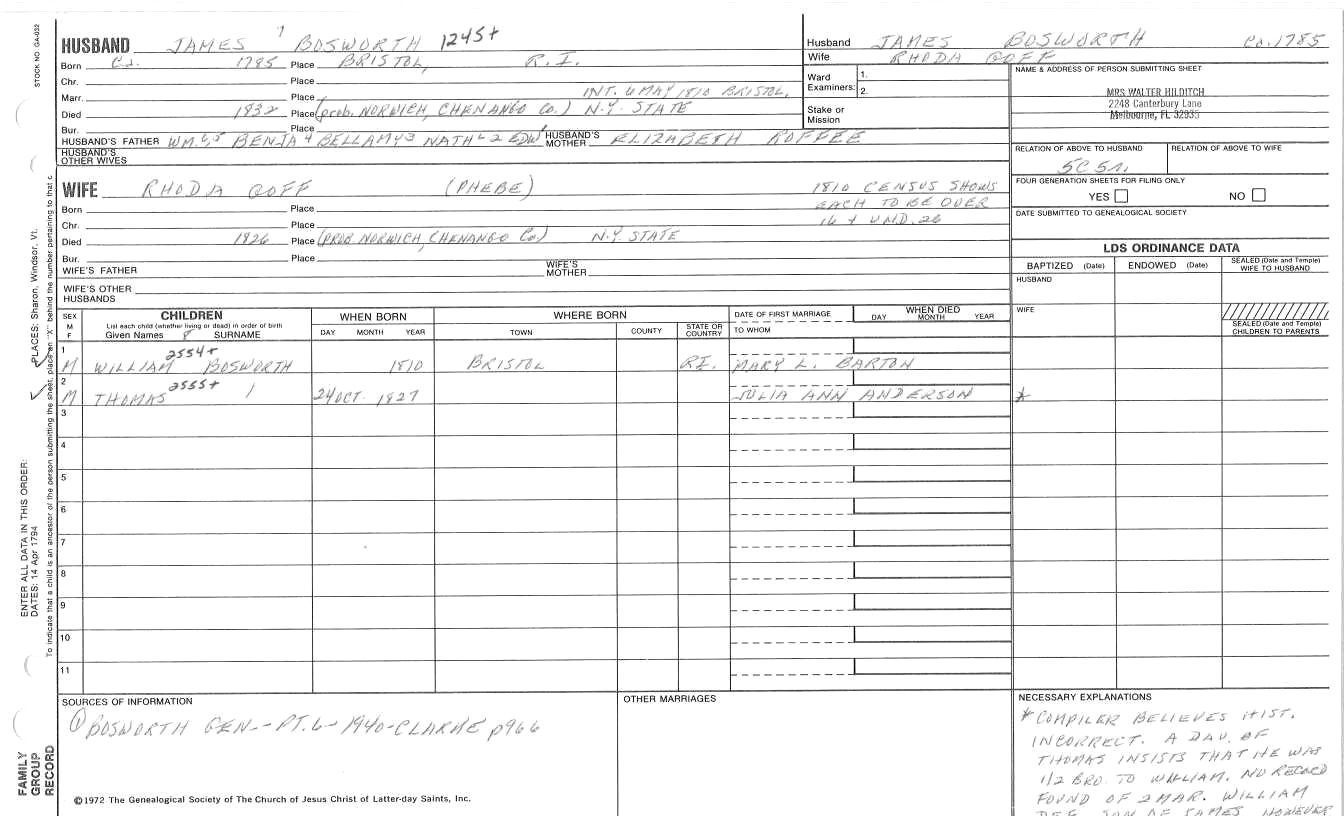 STOCK NO. GA-032
HUSBAND JAMES 7 BOSWORTH 1245+
Born Ca. 1785 Place BRISTOL, R.I.
Chr. Place
Marr. Place INT. 6 MAY 1810 BRISTOL,
Died 1832 Place (prob. NORWICH, CHENANGO Co.) N.Y. STATE
Bur. Place
HUSBAND'S FATHER WM. 6,5 BENJA 4 BELLAMY 3 NATH L 2 EDW 1 HUSBAND'S MOTHER ELIZABETH ROFFEE
HUSBAND'S OTHER WIVES
WIFE RHODA GOFF (PHEBE) 1810 CENSUS SHOWS
Born Place EACH TO BE OVER
Chr. Place 16 + UND. 26
Died 1826 Place (PROB. NORWICH, CHENANGO Co.) N.Y. STATE
Bur. Place
WIFE'S FATHER WIFE'S MOTHER
WIFE'S OTHER HUSBANDS
Husband JAMES BOSWORTH Ca. 1785
Wife RHODA GOFF
Ward Examiners: 1. 2.
Stake or Mission
NAME & ADDRESS OF PERSON SUBMITTING SHEET
MRS WALTER HILDITCH
2248 Canterbury Lane
Melbourne, FL 32935
RELATION OF ABOVE TO HUSBAND RELATION OF ABOVE TO WIFE
5C 5r.
FOUR GENERATION SHEETS FOR FILING ONLY
YES NO
DATE SUBMITTED TO GENEALOGICAL SOCIETY
LDS ORDINANCE DATA
BAPTIZED (Date) ENDOWED (Date) SEALED (Date and Temple) WIFE TO HUSBAND
HUSBAND
WIFE
SEALED (Date and Temple) CHILDREN TO PARENTS
SEX M F CHILDREN WHEN BORN WHERE BORN DATE OF FIRST MARRIAGE WHEN DIED
List each child (whether living or dead) in order of birth
Given Names SURNAME DAY MONTH YEAR TOWN COUNTY STATE OR COUNTRY TO WHOM DAY MONTH YEAR
1 2554+
M WILLIAM 8 BOSWORTH 1810 BRISTOL R.I. MARY L. BARTON
2 2555+
M THOMAS 24 OCT 1827 JULIA ANN ANDERSON *
3
4
5
6
7
8
9
10
11
SOURCES OF INFORMATION
① BOSWORTH GEN.--PT.6-1940-CLARKE p966
OTHER MARRIAGES
NECESSARY EXPLANATIONS
* COMPILER BELIEVES HIST.
INCORRECT. A DAU. OF
THOMAS INSISTS THAT HE WAS
1/2 BRO. TO WILLIAM. NO RECORD
FOUND OF 2 MAR. WILLIAM
DEF. SON OF JAMES HOWEVER
©1972 The Genealogical Society of The Church of Jesus Christ of Latter-day Saints, Inc.
FAMILY GROUP RECORD
ENTER ALL DATA IN THIS ORDER:
DATES: 14 Apr 1794
PLACES: Sharon, Windsor, Vt.
To indicate that a child is an ancestor of the person submitting the sheet, place an "X" behind the number pertaining to that c